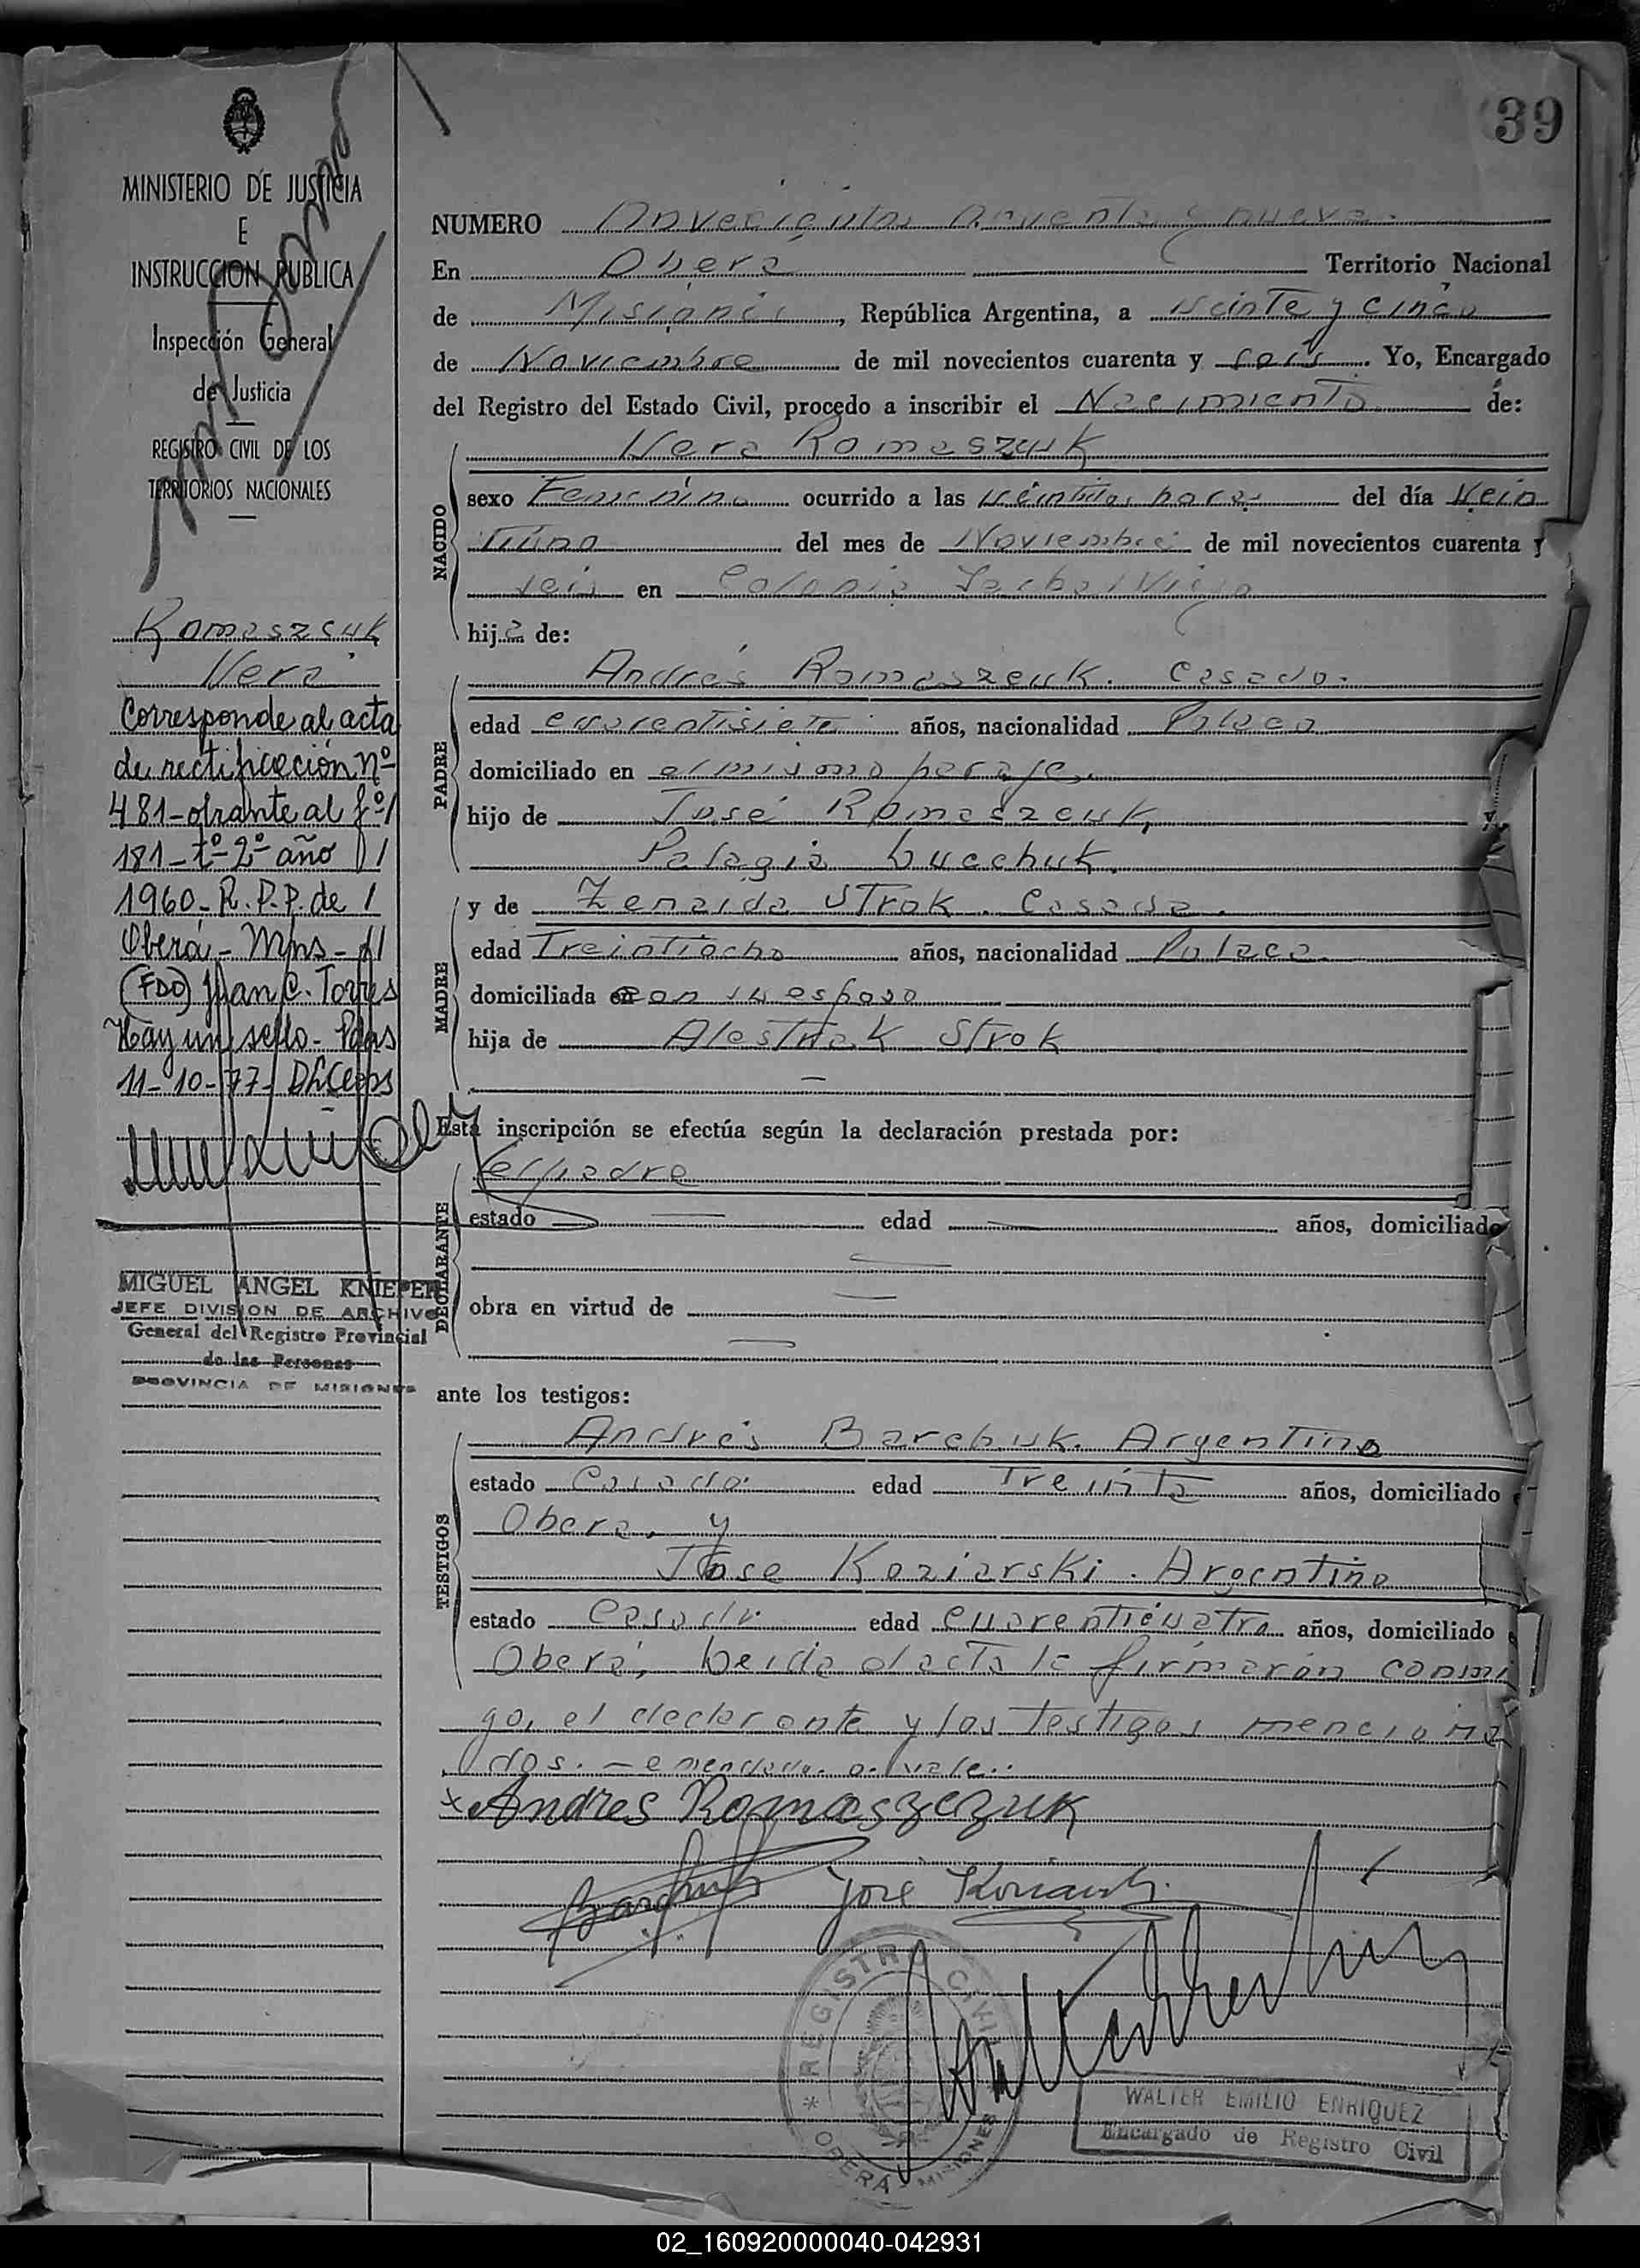 39
MINISTERIO DE JUSTICIA
E
INSTRUCCION PUBLICA
Inspección General
de Justicia
REGISTRO CIVIL DE LOS
TERRITORIOS NACIONALES
Romaszcuk
Vera
Corresponde al acta
de rectificación nº
481-obrante al fº/
181-tº-2º año //
1960-R.P.P. de /
Oberá-Mnes-//
(FDO) Juan C. Torres
Hay un sello-Pdas
11-10-77-
MIGUEL ANGEL KNIEPER
JEFE DIVISION DE ARCHIVO
General del Registro Provincial
de las Personas
PROVINCIA DE MISIONES
NUMERO Novecientos noventa y nueve.
En Oberá Territorio Nacional
de Misiones, República Argentina, a veinte y cinco
de Noviembre de mil novecientos cuarenta y seis. Yo, Encargado
del Registro del Estado Civil, procedo a inscribir el Nacimiento de:
NACIDO
Vera Romaszuk
sexo Femenino ocurrido a las veintidos horas del día Vein
tiuno del mes de Noviembre de mil novecientos cuarenta y
seis en Colonia Viejo
hija de:
PADRE
Andrés Romaszcuk. Casado.
edad cuarentisiete años, nacionalidad Polaco
domiciliado en el mismo paraje,
hijo de José Romaszcuk,
Pelagia Lucchuk
MADRE
y de Zenaida Strok. Casada.
edad Treintiocho años, nacionalidad Polaca.
domiciliada con su esposo
hija de Strok
Esta inscripción se efectúa según la declaración prestada por:
DECLARANTE
el padre
estado — edad — años, domiciliado
—
obra en virtud de —
—
ante los testigos:
TESTIGOS
Andrés Barchuk. Argentino
estado Casado. edad Treinta años, domiciliado
Oberá, y
José Koziarski. Argentino
estado Casado. edad cuarenticuatro años, domiciliado
Oberá, Leida el acta la firmarán conmi
go, el declarante y los testigos menciona
dos. — emendado. a. vale.
x Andres Romaszczuk
José Koziarski.
REGISTRO CIVIL
* OBERÁ - MISIONES
WALTER EMILIO ENRIQUEZ
Encargado de Registro Civil
02_160920000040-042931